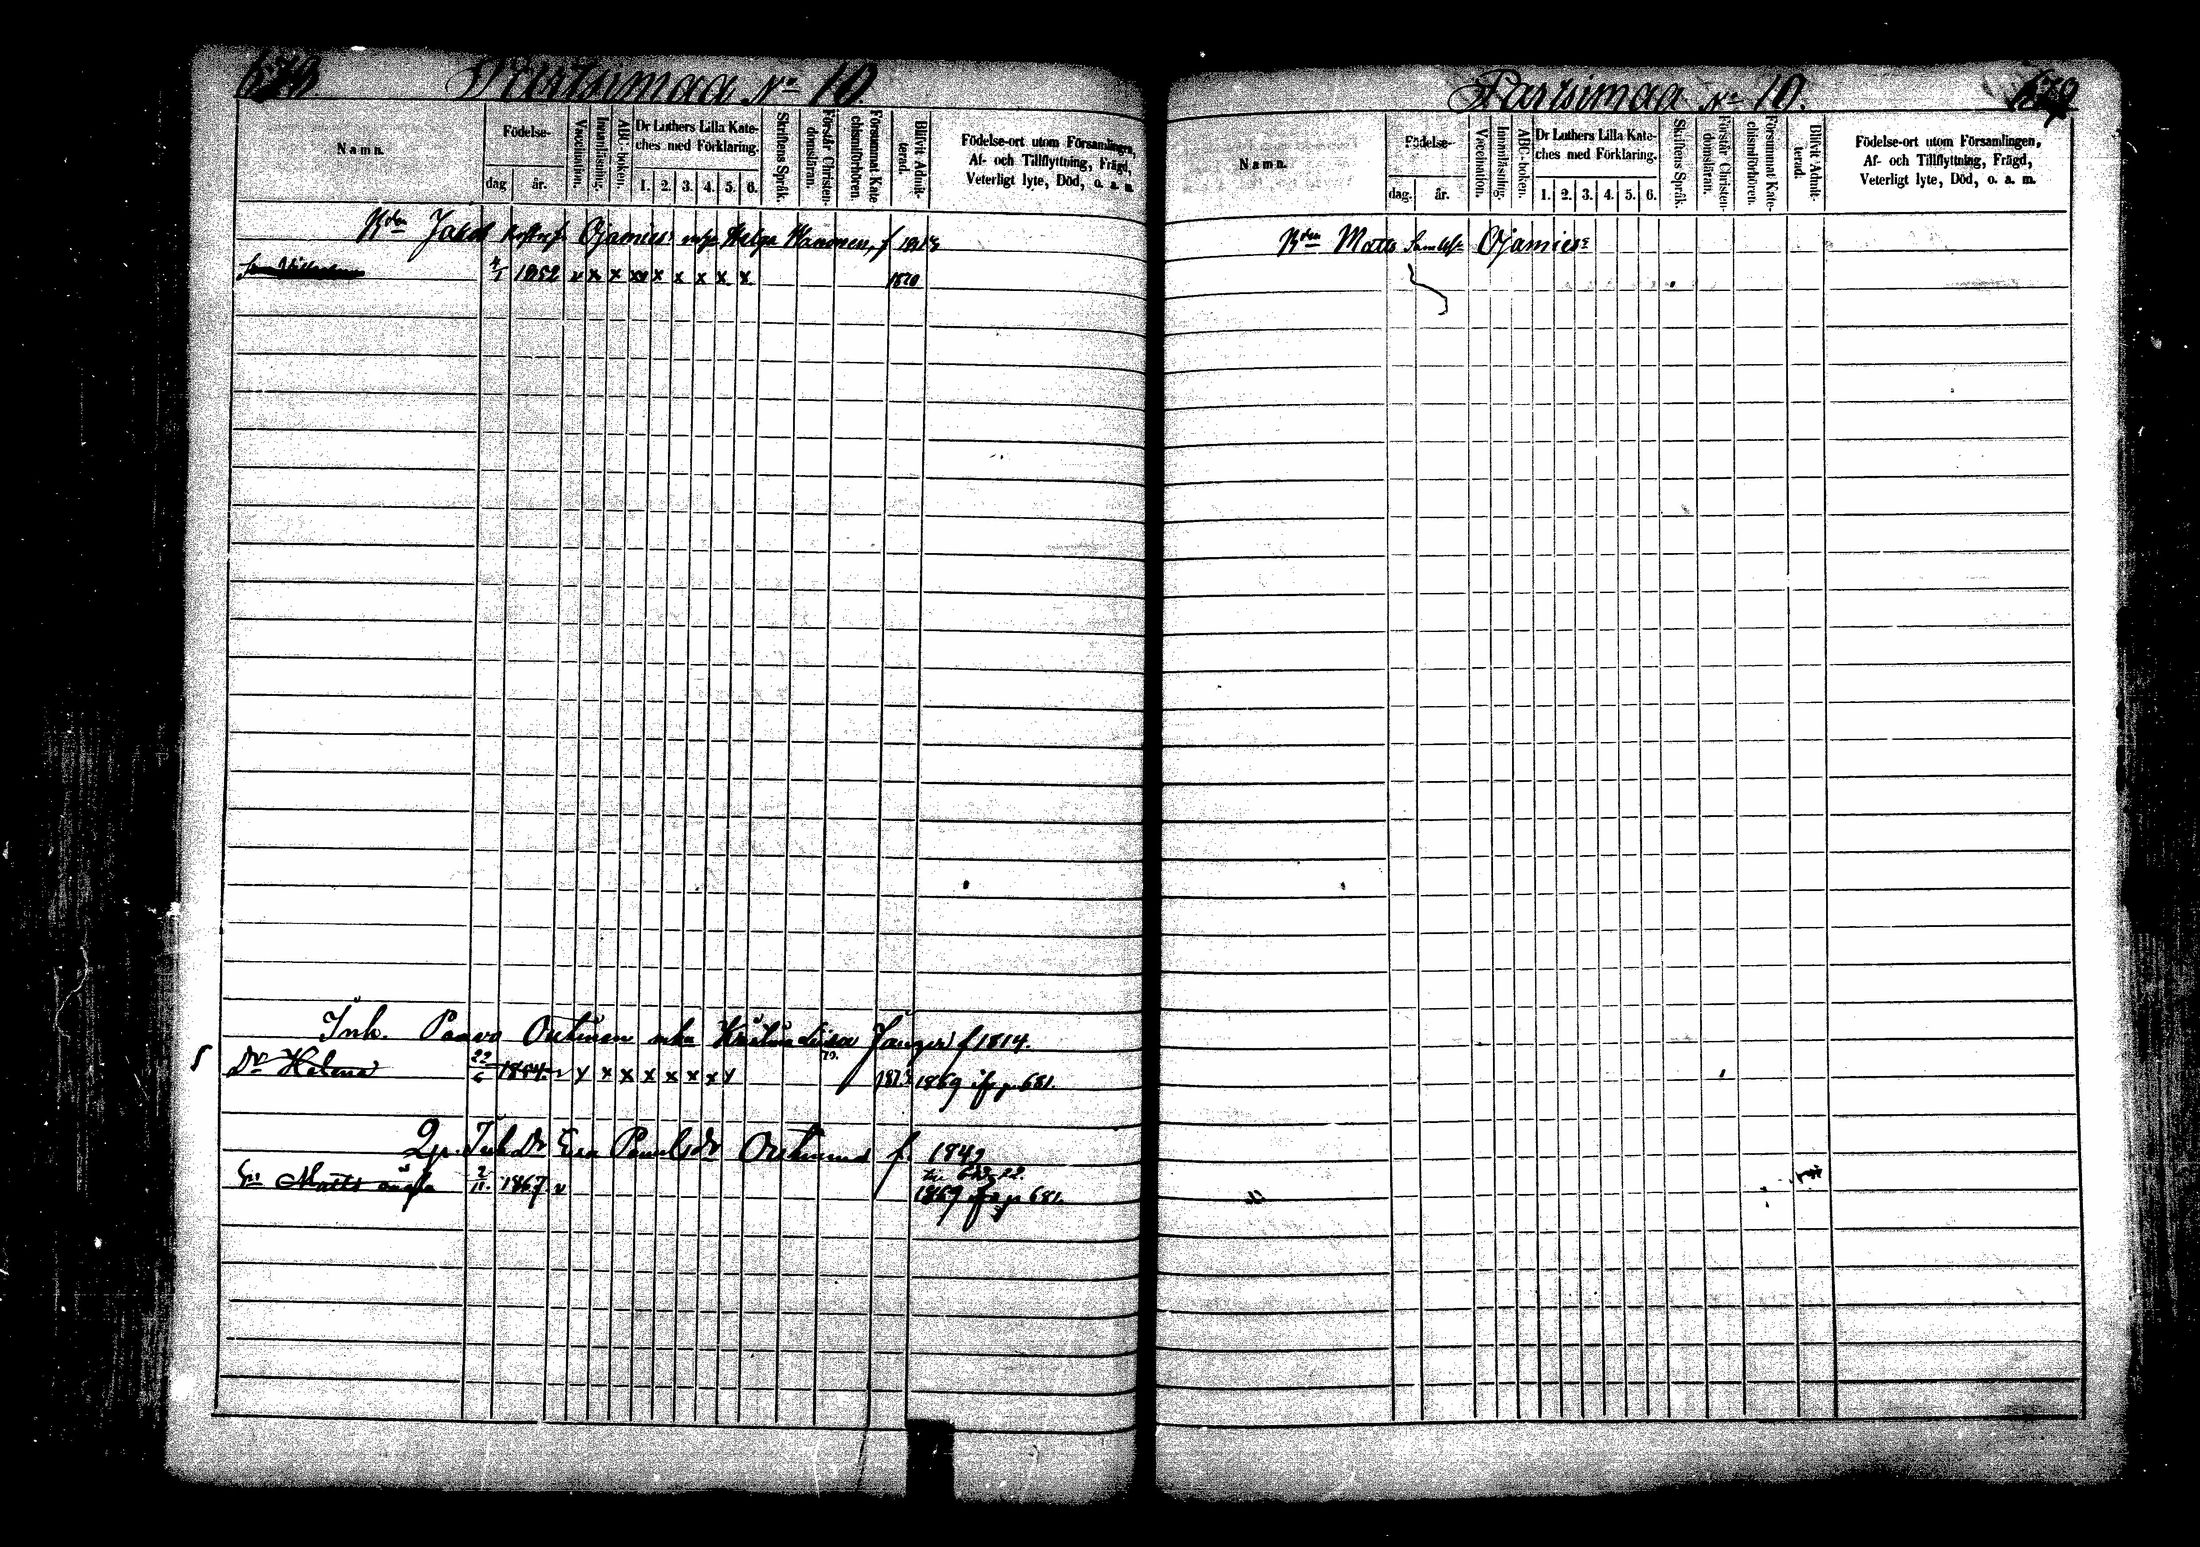 678 Partsimaa No 10.
Namn.
Födelse-
dag
år.
Vaccination.
Innanläsning.
ABC-boken.
Dr Luthers Lilla Kate-
ches med Förklaring.
1. 2. 3. 4. 5. 6.
Skriftens Språk.
Förstår Christen-
domsläran.
Försummat Kate-
chismiförhören.
Blifvit Admit-
terad.
Födelse-ort utom Församlingen,
Af- och Tillflyttning, Frägd,
Veterligt lyte, Död, o. a. m.
Bdn Jakob Ojamies Helga
1852 v x x x x x x x x 1870
Ink. Paavo enka Kristina f 1814.
Dr Helena 22/6 1854 v x x x x x x x x 1873 1869 p 681.
Ink Dr Eva Paulsdr f 1849
Sn Matts 2/11 1867 v
1869 p 681.
Partsimaa No 10. 679
Namn.
Födelse-
dag.
år.
Vaccination.
Innanläsning.
ABC-boken.
Dr Luthers Lilla Kate-
ches med Förklaring.
1. 2. 3. 4. 5. 6.
Skriftens Språk.
Förstår Christen-
domsläran.
Försummat Kate-
chismiförhören.
Blifvit Admit-
terad.
Födelse-ort utom Församlingen,
Af- och Tillflyttning, Frägd,
Veterligt lyte, Död, o. a. m.
Bdn Matts Ojamies